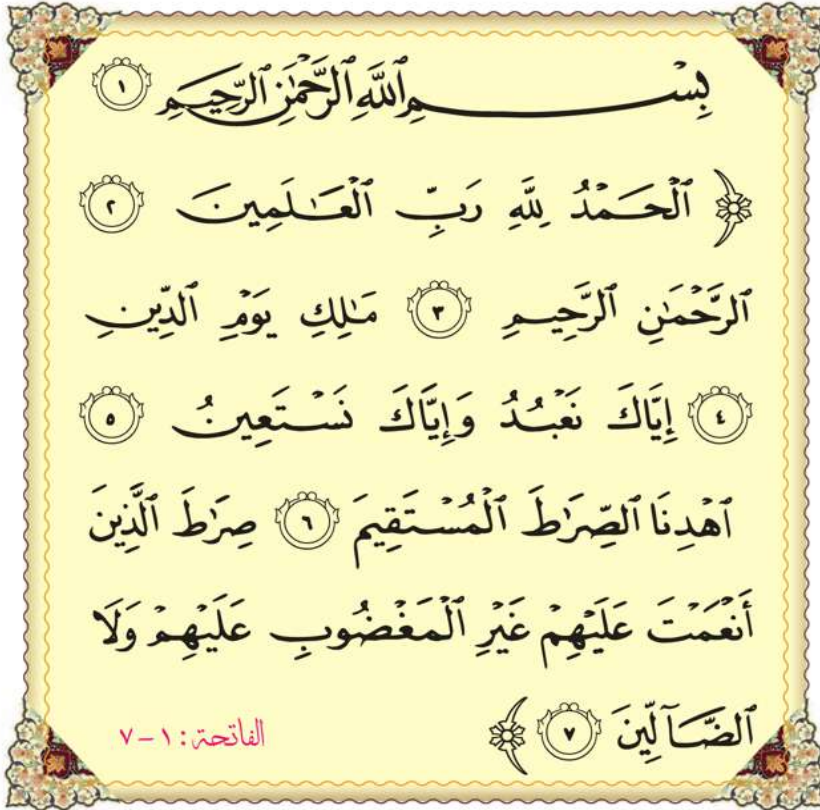 بِسْمِ ٱللَّهِ ٱلرَّحْمَٰنِ ٱلرَّحِيمِ ١
﴿ ٱلْحَمْدُ لِلَّهِ رَبِّ ٱلْعَـٰلَمِينَ ٢
ٱلرَّحْمَـٰنِ ٱلرَّحِيمِ ٣ مَـٰلِكِ يَوْمِ ٱلدِّينِ
٤ إِيَّاكَ نَعْبُدُ وَإِيَّاكَ نَسْتَعِينُ ٥
ٱهْدِنَا ٱلصِّرَٰطَ ٱلْمُسْتَقِيمَ ٦ صِرَٰطَ ٱلَّذِينَ
أَنْعَمْتَ عَلَيْهِمْ غَيْرِ ٱلْمَغْضُوبِ عَلَيْهِمْ وَلَا
ٱلضَّآلِّينَ ٧ ﴾
الفاتحة: ١ - ٧